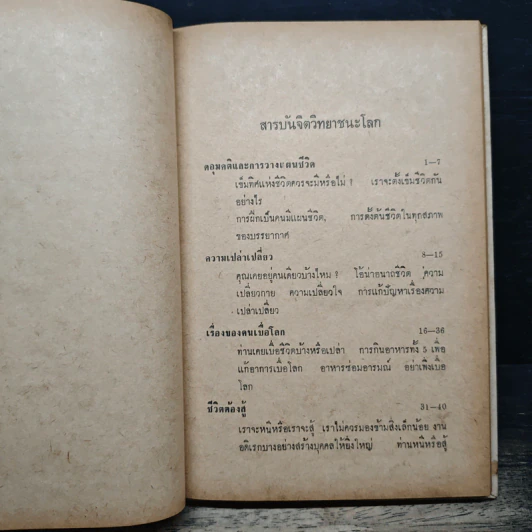 สารบันจิตวิทยาชนะโลก
คอุมคติและการวางแผนชีวิต 1—7
เข็มทิศแห่งชีวิตควรจะมีหรือไม่ ? เราจะตั้งเข็มชีวิตกัน
อย่างไร
การฝึกเป็นคนมีแผนชีวิต, การตั้งต้นชีวิตในทุกสภาพ
ของบรรยากาศ
ความเปล่าเปลี่ยว 8—15
คุณเคยอยู่คนเดียวบ้างไหม ? ไอ้น่าอนาถชีวิต ความ
เปลี่ยวกาย ความเปลี่ยวใจ การแก้ปัญหาเรื่องความ
เปล่าเปลี่ยว
เรื่องของคนเบื่อโลก 16—36
ท่านเคยเบื่อชีวิตบ้างหรือเปล่า การกินอาหารทั้ง 5 เพื่อ
แก้อาการเบื่อโลก อาหารซ่อมอารมณ์ อย่าเพิ่งเบื่อ
โลก
ชีวิตต้องสู้ 31—40
เราจะหนีหรือเราจะสู้ เราไม่ควรมองข้ามสิ่งเล็กน้อย งาน
อดิเรกบางอย่างสร้างบุคคลให้ยิ่งใหญ่ ท่านหนีหรือสู้